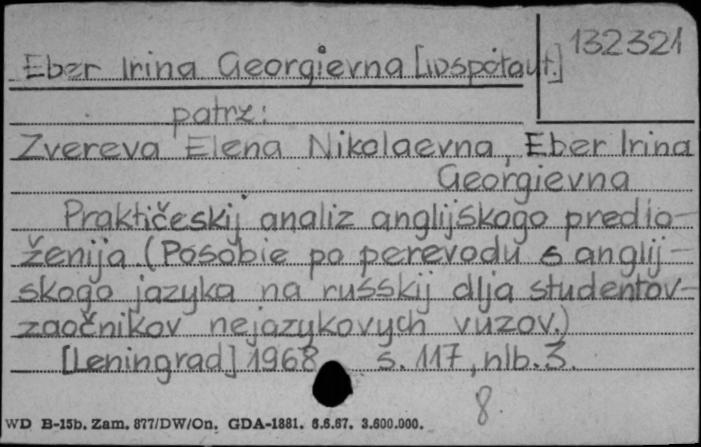 132321
Eber Irina Georgievna [wspótaut.]
patrz:
Zvereva Elena Nikolaevna, Eber Irina
Georgievna
Praktičeskij analiz anglijskogo predlo-
ženija (Posobie po perevodu s anglij-
skogo jazyka na russkij dlja studentov-
zaočnikov nejazykovych vuzov.)
[Leningrad] 1968 s. 117, nlb. 3.
8.
WD B-15b. Zam. 877/DW/On. GDA-1881. 6.6.67. 3.600.000.